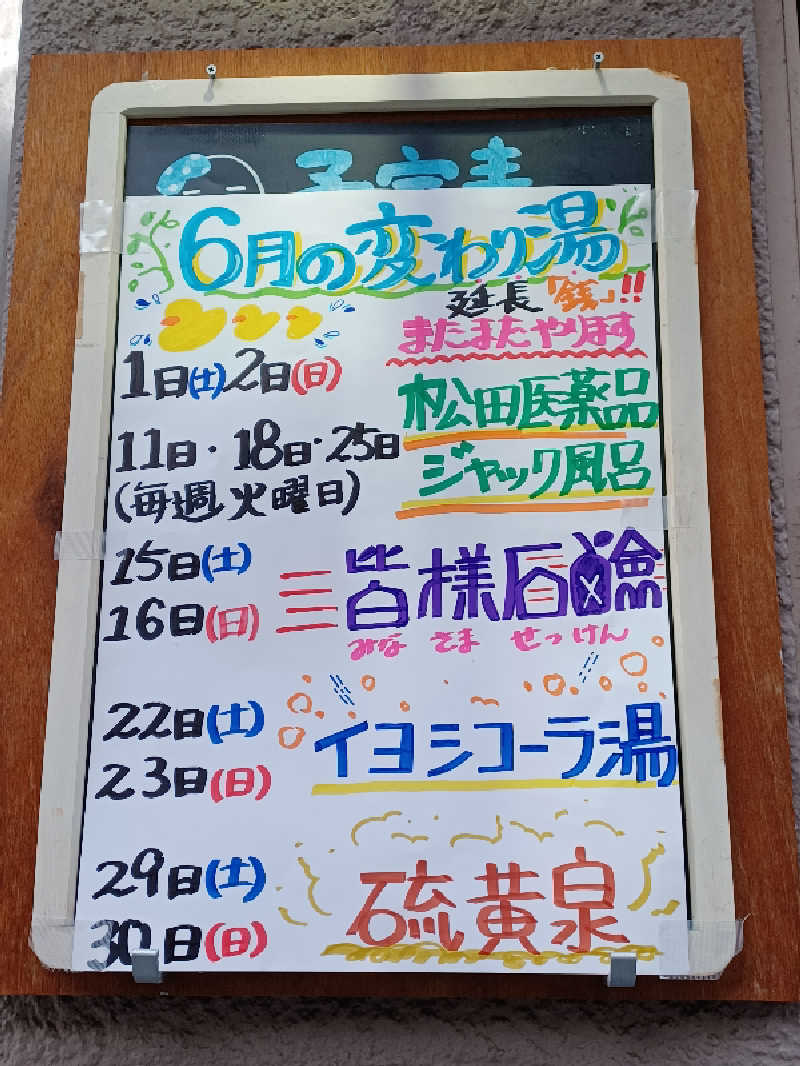 6月の変わり湯
延長「銭」!!
またまたやります
1日(土)2日(日)
松田医薬品
11日・18日・25日
(毎週火曜日)
ジャック風呂
15日(土)
16日(日)
皆様石鹸
みな さま せっけん
22日(土)
23日(日)
イヨシコーラ湯
29日(土)
30日(日)
硫黄泉